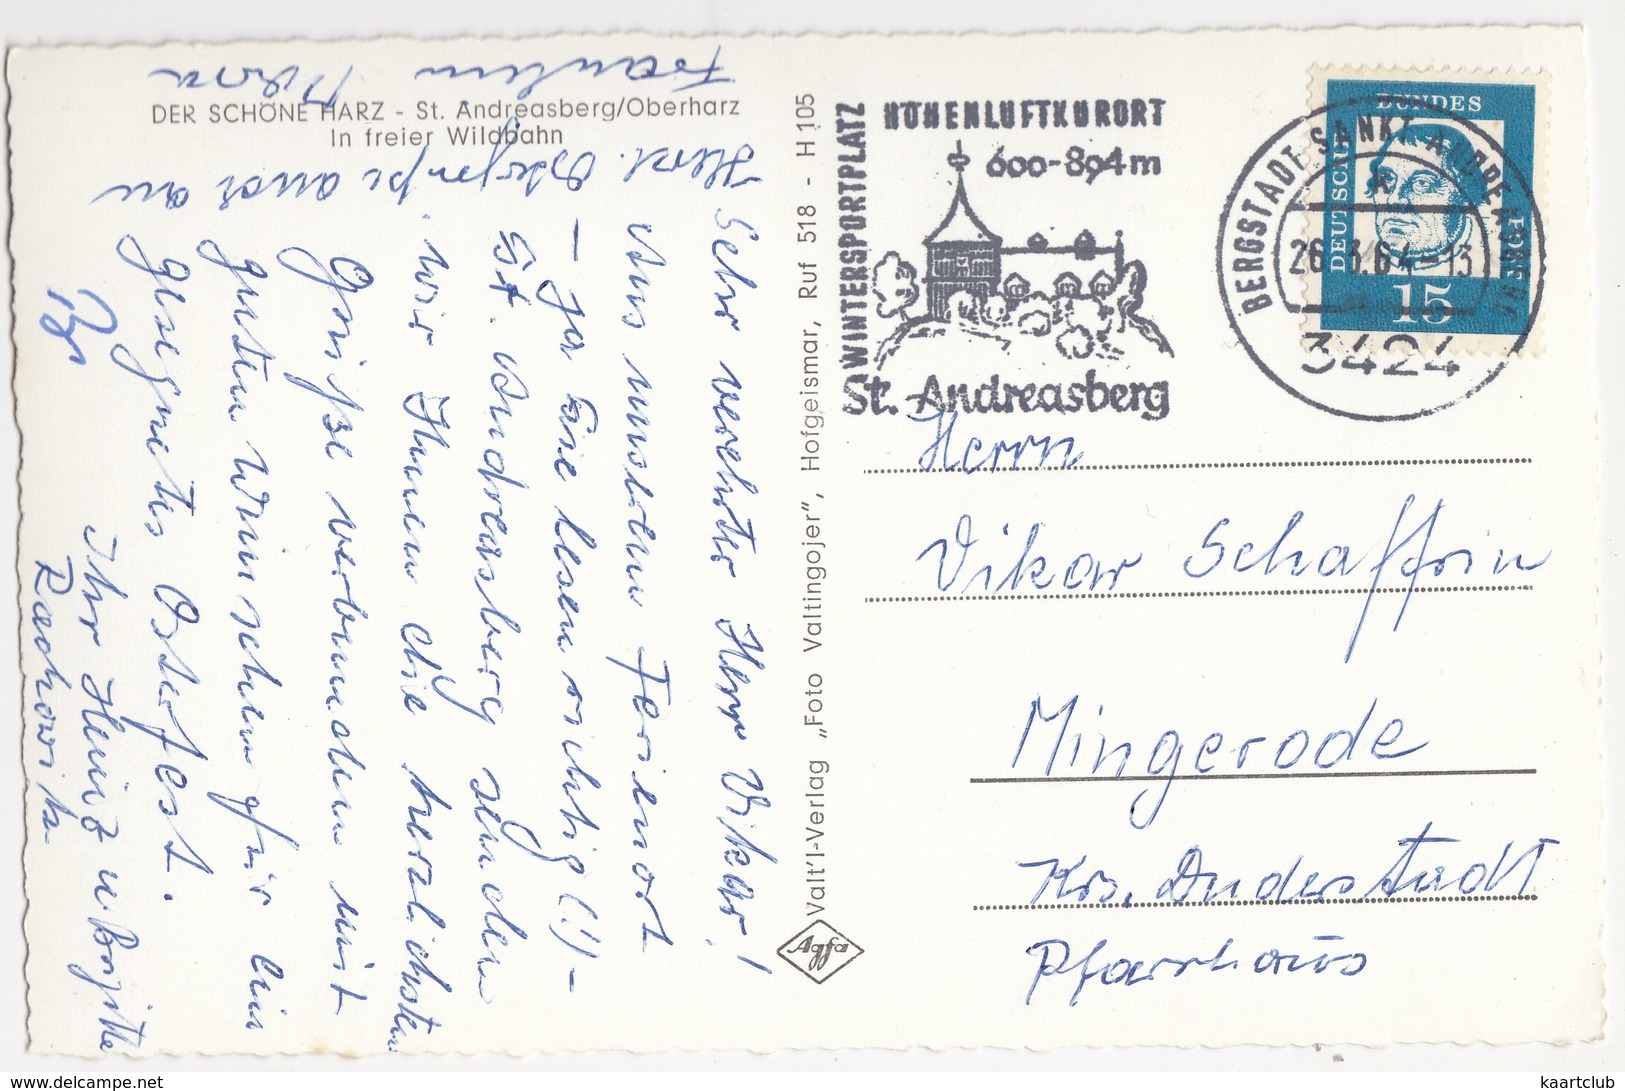 DER SCHÖNE HARZ - St. Andreasberg/Oberharz
In freier Wildbahn
Sehr verehrter Herr Vikar!
Aus unserem Ferienort
- ja Sie lesen richtig (!) -
St. Andreasberg senden
wir Ihnen die herzlichsten
Grüße verbunden mit
guten Wünschen für ein
gesegnetes Osterfest.
Ihr Heinz u. Brigitte
Rachowitz
Herzl. Ostergrüße auch an
Fräulein
Valt'l-Verlag „Foto Valtingojer", Hofgeismar, Ruf 518 - H 105
Agfa
WINTERSPORTPLATZ
HÖHENLUFTKURORT
600-894m
St. Andreasberg
BERGSTADT SANKT ANDREASBERG
26.3.64-13
3424
DEUTSCHE
BUNDES
15
Herrn
Vikar Schaffrin
Mingerode
Krs. Duderstadt
Pfarrhaus
kaartclub